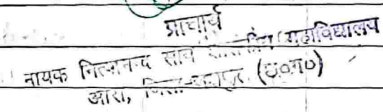 प्राचार्य
नायक नित्यानन्द साय महाविद्यालय
आरा, जिला-जशपुर (छ०ग०)